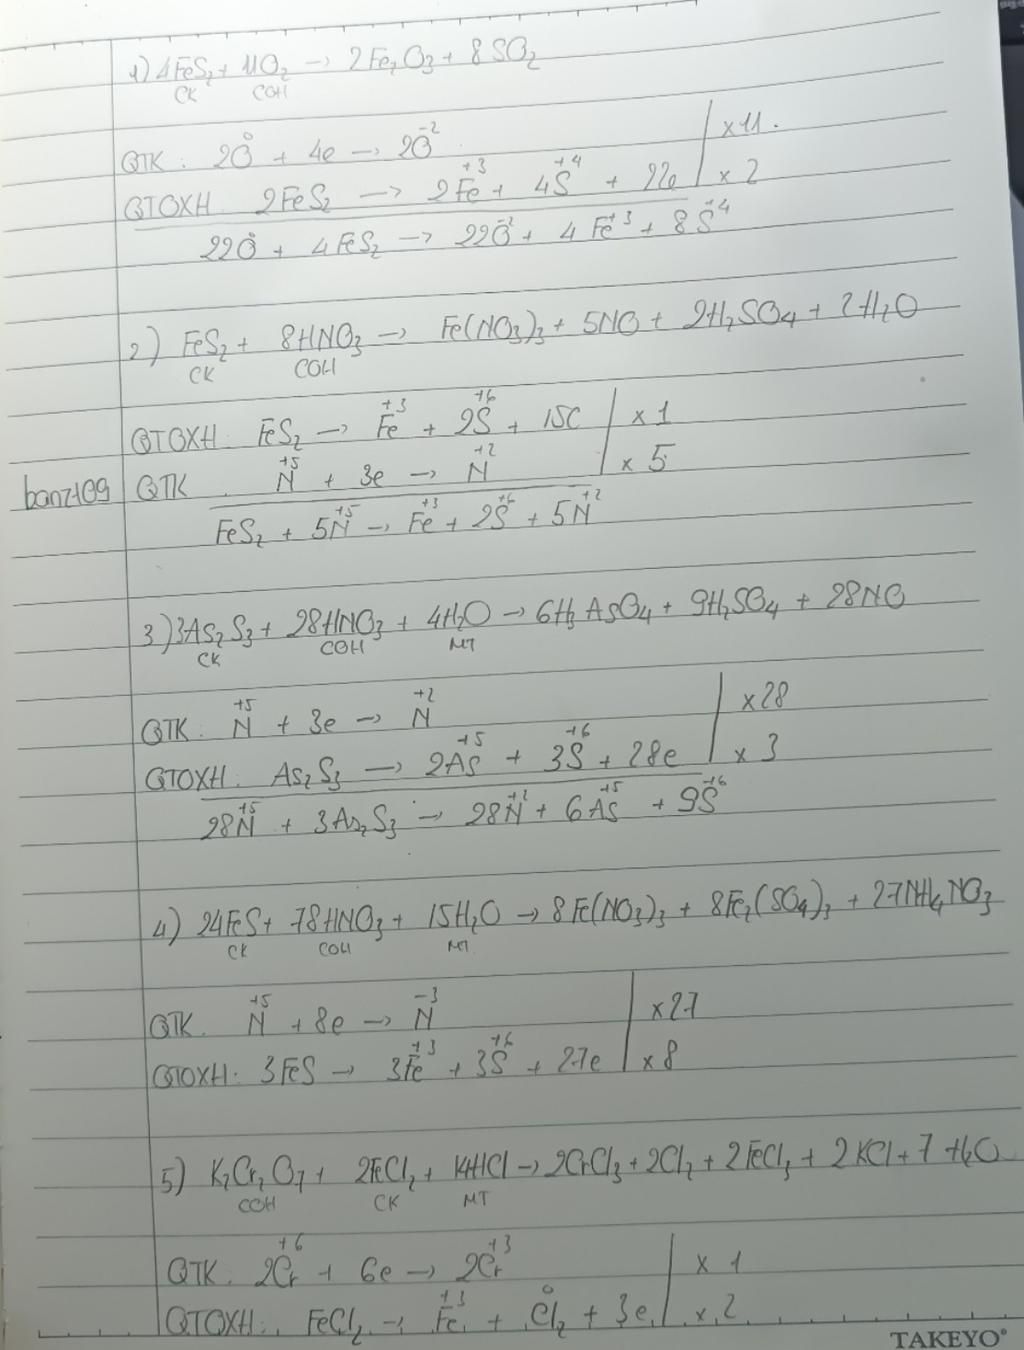 1) 4FeS₂ + 11O₂ → 2Fe₂O₃ + 8SO₂
CK COH
QTK: 2O⁰ + 4e → 2O⁻² | x 11.
QTOXH: 2FeS₂ → 2Fe⁺³ + 4S⁺⁴ + 22e | x 2
22O⁰ + 4FeS₂ → 22O⁻² + 4Fe⁺³ + 8S⁺⁴
2) FeS₂ + 8HNO₃ → Fe(NO₃)₃ + 5NO + 2H₂SO₄ + 2H₂O
CK COH
QTOXH: FeS₂ → Fe⁺³ + 2S⁺⁶ + 15e | x 1
banzt09 QTK: N⁺⁵ + 3e → N⁺² | x 5
FeS₂ + 5N⁺⁵ → Fe⁺³ + 2S⁺⁶ + 5N⁺²
3) 3As₂S₃ + 28HNO₃ + 4H₂O → 6H₃AsO₄ + 9H₂SO₄ + 28NO
CK COH MT
QTK: N⁺⁵ + 3e → N⁺² | x 28
QTOXH: As₂S₃ → 2As⁺⁵ + 3S⁺⁶ + 28e | x 3
28N⁺⁵ + 3As₂S₃ → 28N⁺² + 6As⁺⁵ + 9S⁺⁶
4) 24FeS + 78HNO₃ + 15H₂O → 8Fe(NO₃)₃ + 8Fe₂(SO₄)₃ + 27NH₄NO₃
CK COH MT
QTK. N⁺⁵ + 8e → N⁻³ | x 27
QTOXH: 3FeS → 3Fe⁺³ + 3S⁺⁶ + 27e | x 8
5) K₂Cr₂O₇ + 2FeCl₂ + 14HCl → 2CrCl₃ + 2Cl₂ + 2FeCl₃ + 2KCl + 7H₂O
COH CK MT
QTK: 2Cr⁺⁶ + 6e → 2Cr⁺³ | x 1
QTOXH: FeCl₂ → Fe⁺³ + Cl₂⁰ + 3e | x 2
TAKEYO®